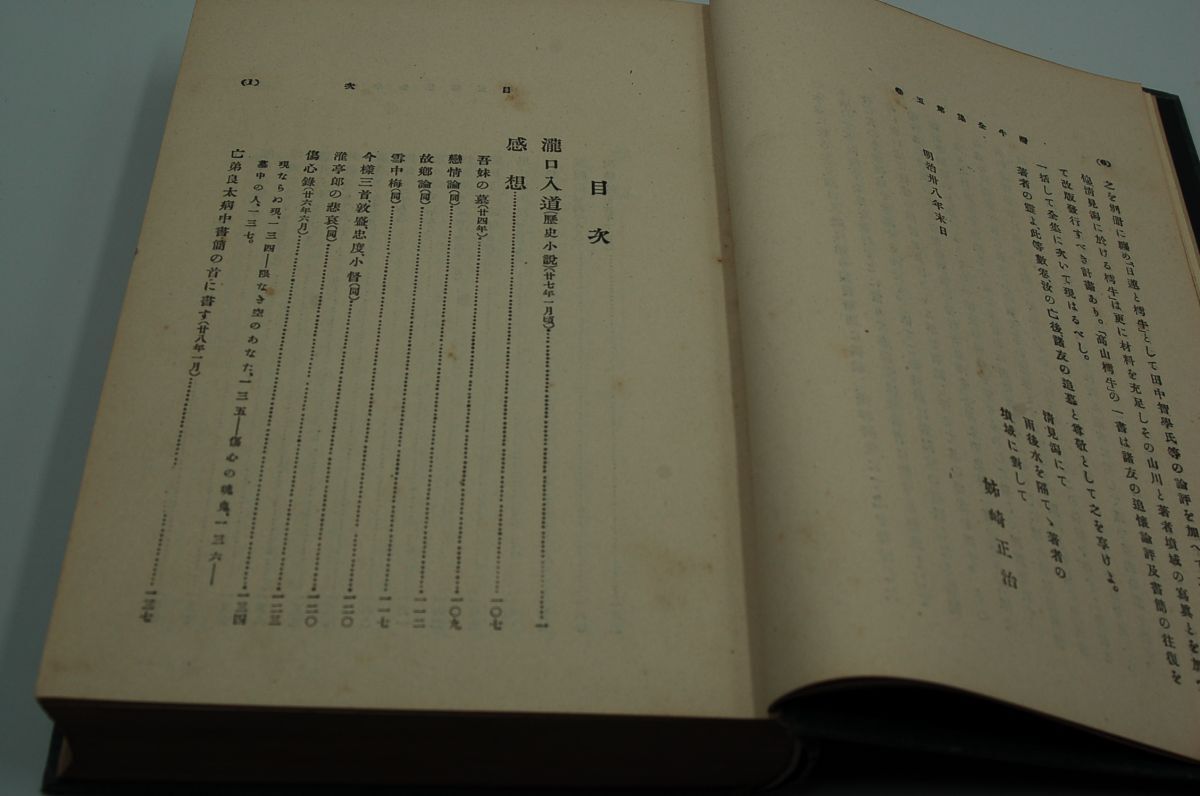 樗牛全集第五卷
(6)
之を別冊に纏め『日蓮と樗牛』として田中智學氏等の論評を加へて
於ける樗牛』は更に材料を充足しその山川と著者墳域の寫眞とを加へ
て改版發行すべき計畫あり。『高山樗牛』の一書は諸友の追懷論評及書簡の往復を
一括して全集に次いで現はるべし。
著者の靈よ此等數卷汝の亡後諸友の追慕と尊敬として之を享けよ。
清見潟にて
雨後水を隔てゝ著者の
墳域に對して
明治卅八年末日
姉崎正治
目次
(1)
目次
瀧口入道(歷史小說)(廿七年一月頃)……一
感想
吾妹の墓(廿四年)……一〇七
戀情論(同)……一〇九
故鄉論(同)……一一二
雪中梅(同)……一一七
今樣三首、敦盛、忠度、小督(同)……一二〇
淮亭郎の悲哀(同)……一二〇
傷心錄(廿六年六月)……一二三
現ならぬ現、一三四—限なき空のあなた、一三五—傷心の魂魄、一三六—
墓中の人、一三七。
……一三四
亡弟良太病中書簡の首に書す(廿八年一月)……一三七